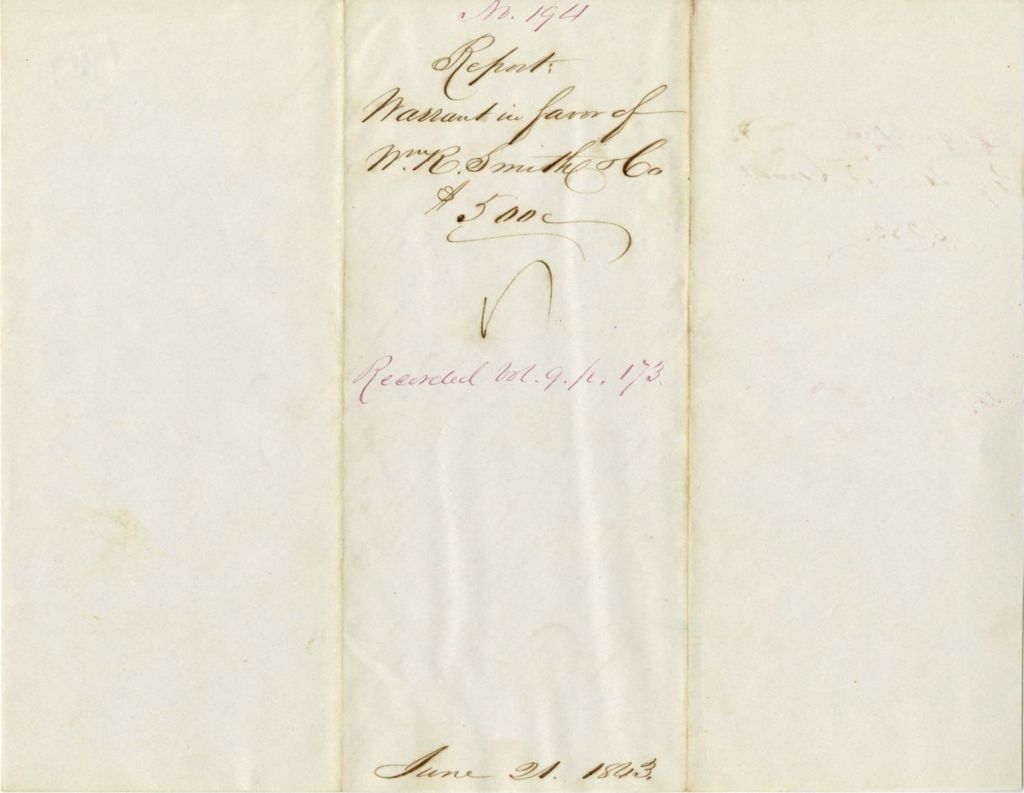 No. 194
Report:
Warrant in favor of
Wm. R. Smith & Co
$500
Recorded Vol. 9. p. 173.
June 21. 1843.